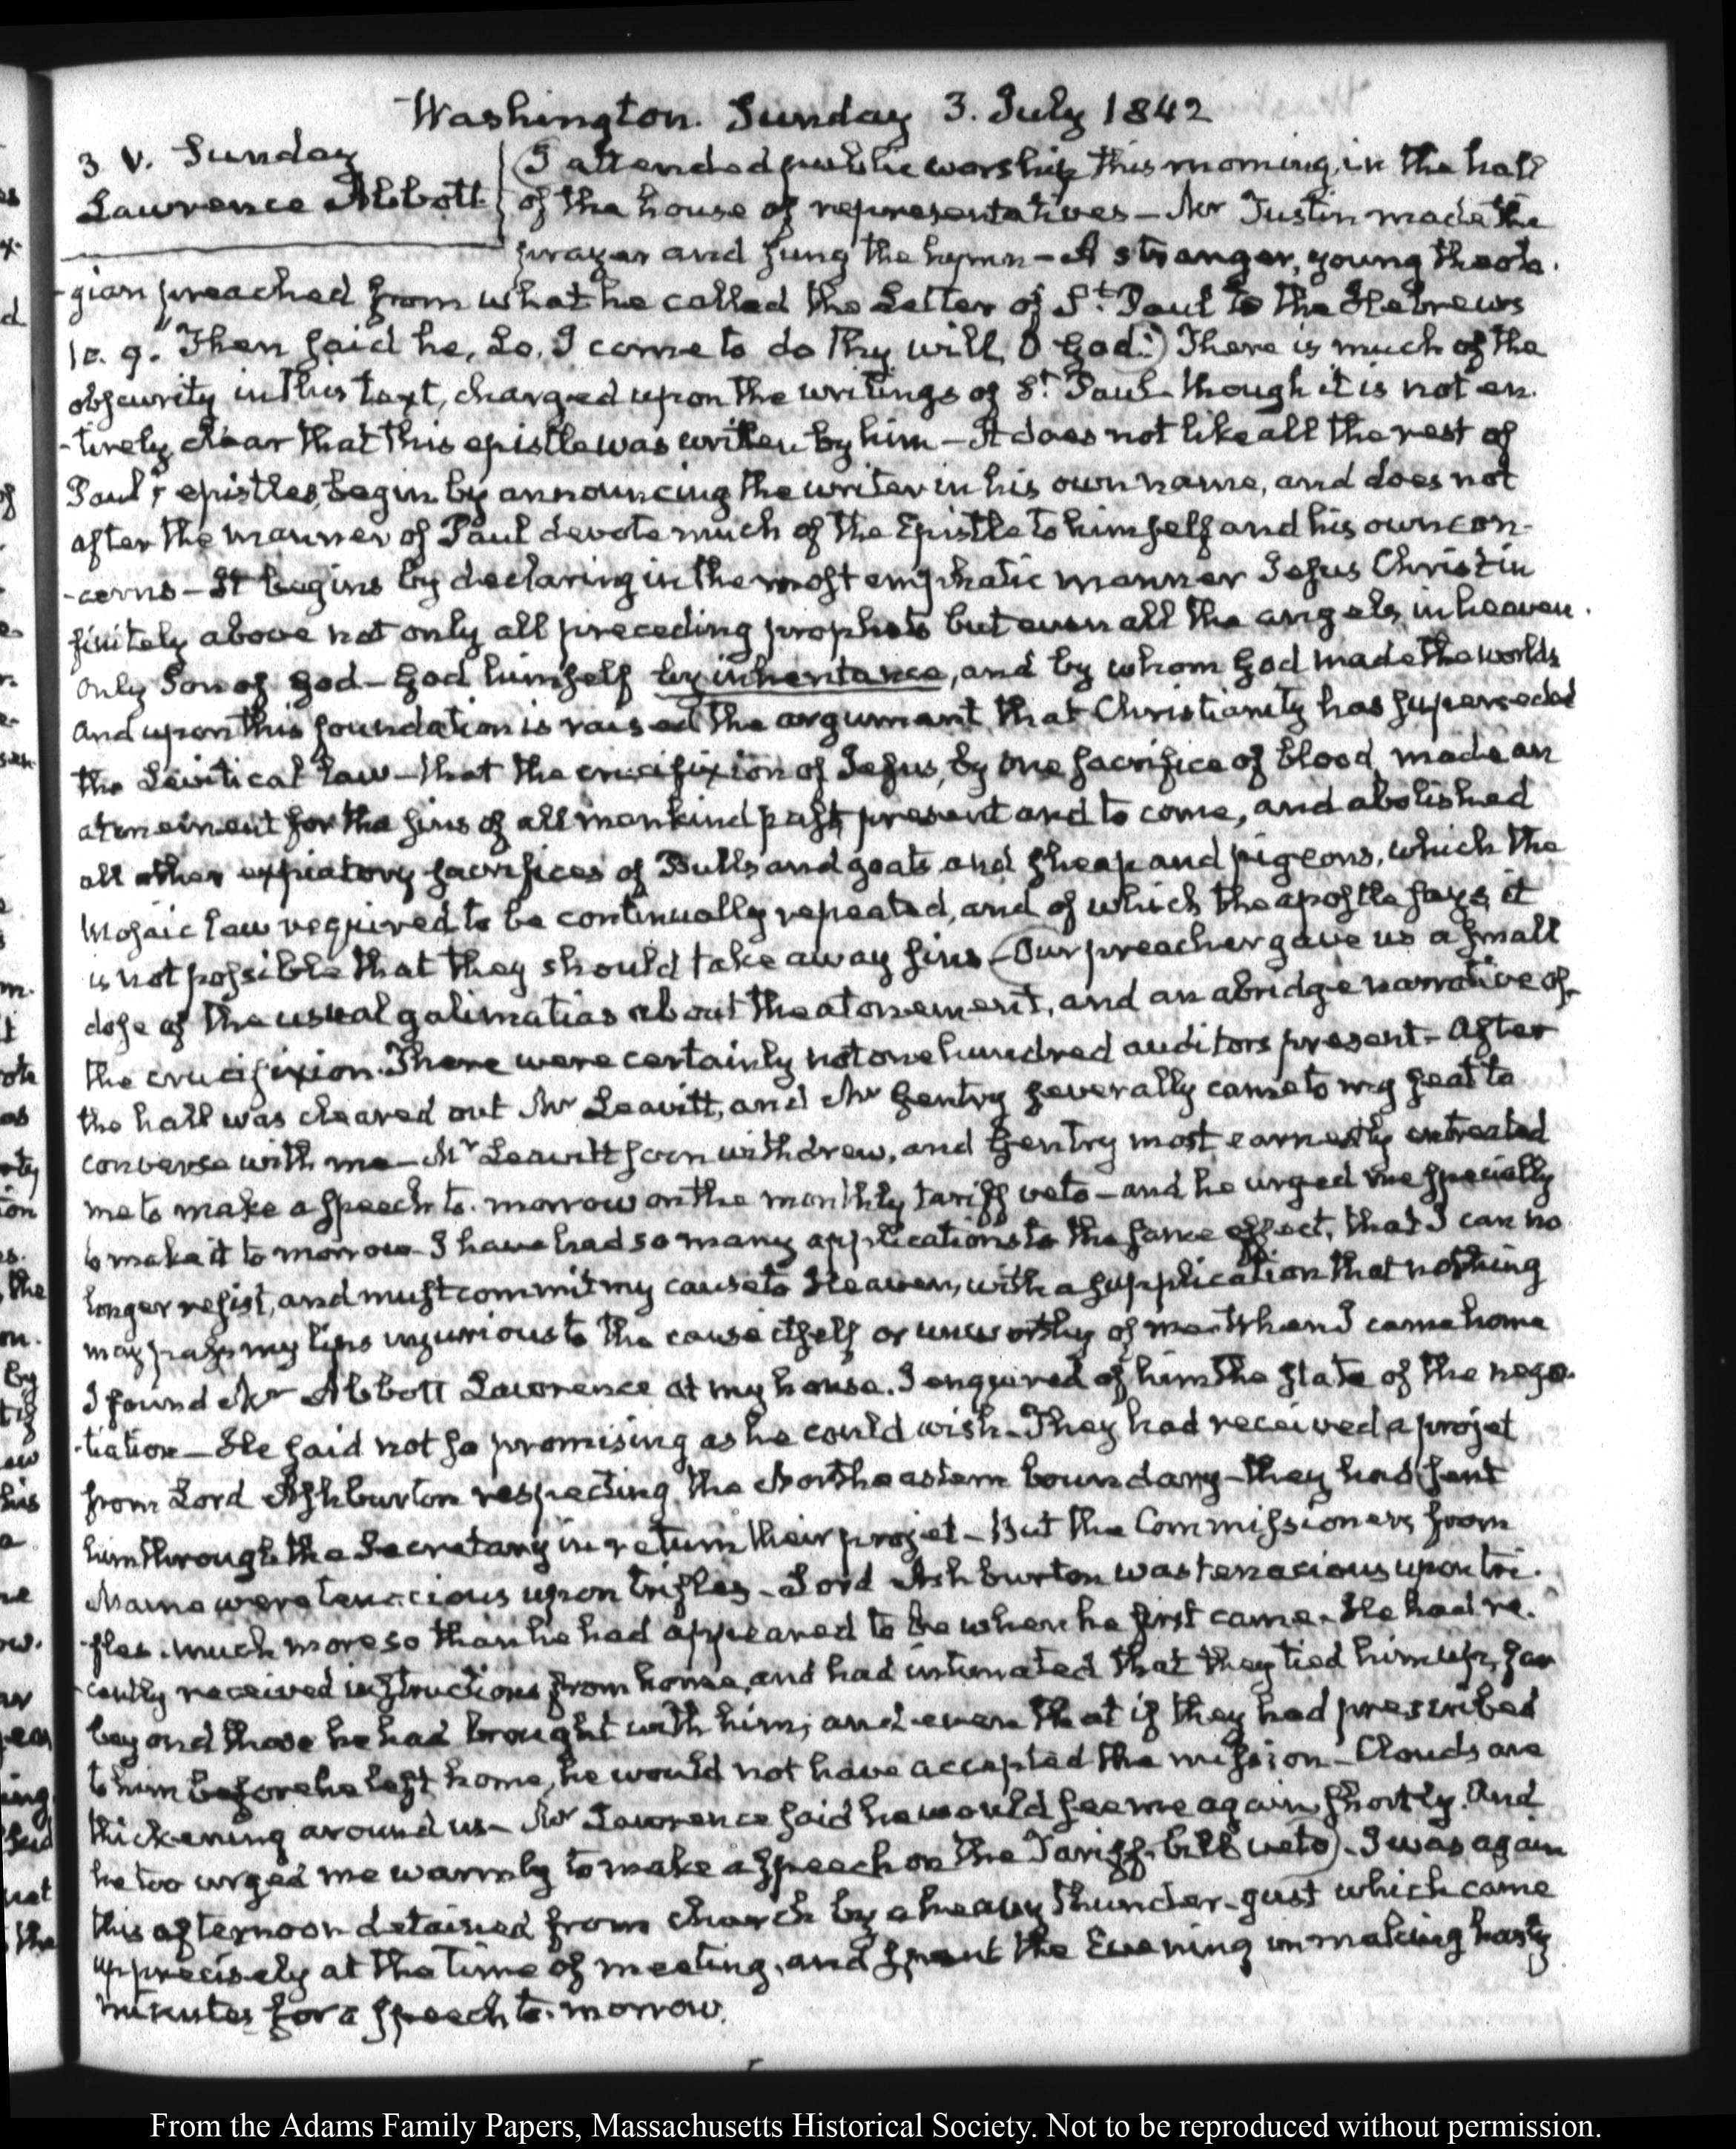 Washington. Sunday 3. July 1842
3. V. Sunday
Lawrence Abbott
(I attended public worship this morning, in the hall
of the house of representatives — Mr Tustin made the
prayer and sung the hymn — A stranger, young theolo-
-gian preached from what he called the Letter of St. Paul to the Hebrews
10. 9. "Then said he, Lo, I come to do thy will, O God.") There is much of the
obscurity in this text, charged upon the writings of St. Paul though it is not en-
-tirely clear that this epistle was written by him — It does not like all the rest of
Paul's epistles, begin by announcing the writer in his own name, and does not
after the manner of Paul devote much of the Epistle to himself and his own con-
-cerns — It begins by declaring in the most emphatic manner Jesus Christ in
finitely above not only all preceding prophets but even all the angels in heaven.
Only Son of God — God himself by inheritance, and by whom God made the worlds
And upon this foundation is raised the argument that Christianity has superseded
the Levitical law — that the crucifixion of Jesus, by one sacrifice of blood, made an
atonement for the sins of all mankind past, present and to come, and abolished
all other expiatory sacrifices of Bulls and goats, and sheep and pigeons, which the
Mosaic law required to be continually repeated, and of which the apostle says, it
is not possible that they should take away sins — (Our preacher gave us a small
dose of the usual galimatias about the atonement, and an abridge narrative of
the crucifixion. There were certainly not one hundred auditors present — After
the hall was cleared out Mr Leavitt, and Mr Gentry severally came to my seat to
converse with me — Mr Leavitt soon withdrew, and Gentry most earnestly entreated
me to make a speech to-morrow on the monthly tariff veto — and he urged me specially
to make it to morrow — I have had so many applications to the same effect, that I can no
longer resist, and must commit my cause to Heaven, with a supplication that nothing
may pass my lips injurious to the cause itself or unworthy of me — When I came home
I found Mr Abbott Lawrence at my house. I enquired of him the state of the nego-
-tiation — He said not so promising as he could wish — They had received a projet
from Lord Ashburton respecting the Northeastern boundary — they had sent
him through the Secretary in return their projet — But the Commissioners from
Maine were tenacious upon trifles — Lord Ashburton was tenacious upon tri-
-fles. much more so than he had appeared to be when he first came. He had re-
-cently received instructions from home, and had intimated that they tied him up, far
beyond those he had brought with him; and even that if they had prescribed
to him before he left home, he would not have accepted the mission — Clouds are
thickening around us — Mr Lawrence said he would see me again, shortly. And
he too urged me warmly to make a speech on the Tariff-bill veto). I was again
this afternoon detained from church by a heavy thunder-gust which came
up precisely at the time of meeting, and spent the Evening in making hasty
minutes for a speech to-morrow.
From the Adams Family Papers, Massachusetts Historical Society. Not to be reproduced without permission.